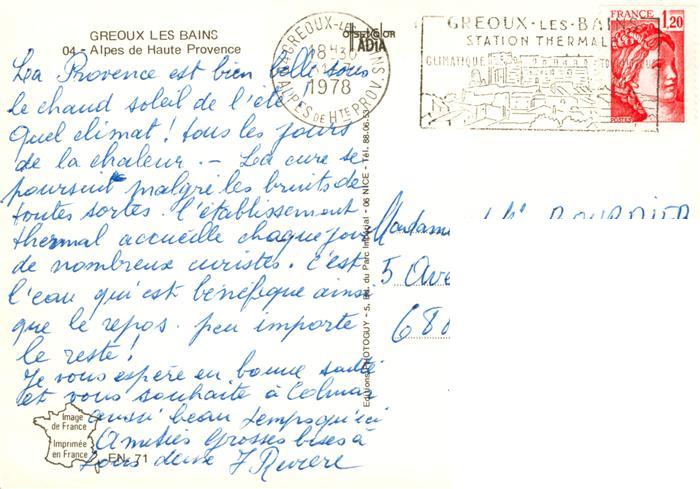 GREOUX LES BAINS
04 - Alpes de Haute Provence
La Provence est bien belle sous
le chaud soleil de l'été
Quel climat ! tous les jours
de la chaleur. - La cure se
poursuit malgré les bruits de
toutes sortes. l'établissement
thermal accueille chaque jour
de nombreux curistes. C'est
l'eau qui est bénéfique ainsi
que le repos. peu importe
le reste !
Je vous espère en bonne santé
et vous souhaite à Colmar
aussi beau temps qu'ici
Amitiés Grosses bises à
tous deux J Rivière
Image
de France
Imprimée
en France
EN. 71
Editions PHOTOGUY - 5, Bd. du Parc Impérial - 06 NICE - Tél. 88-06-53
GREOUX-LES-BAINS
18H30
1978
ALPES DE HTE PROV.
GREOUX-LES-BAINS
STATION THERMALE
CLIMATIQUE
FRANCE
1,20
POSTES
Madame
5 Ave
680